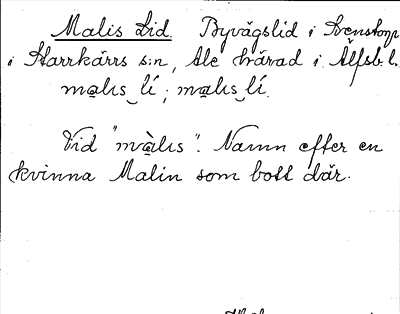 Malis Lid. Byvägslid i Svenstorp
i Starrkärrs s:n, Ale härad i Älfsb. l.
mạlıs‿lí ; mạlıs‿lí.
Vid "mạ̀lıs". Namn efter en
kvinna Malin som bott där.